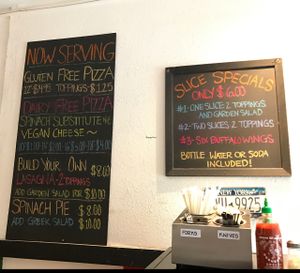 NOW SERVING
GLUTEN FREE PIZZA
12" $14.95 TOPPINGS $1.25
DAIRY FREE PIZZA
SPINACH SUBSTITUTE THE
VEGAN CHEESE~
BUILD YOUR OWN $8.00
LASAGNA-2 TOPPINGS
ADD GARDEN SALAD FOR $10.00
SPINACH PIE $8.00
ADD GREEK SALAD $10.00
SLICE SPECIALS
ONLY $6.00
#1-ONE SLICE 2 TOPPINGS
AND GARDEN SALAD
#2-TWO SLICES 2 TOPPINGS
#3-SIX BUFFALO WINGS
BOTTLE WATER OR SODA
INCLUDED!
NEW YORK
9925
FORKS
KNIVES